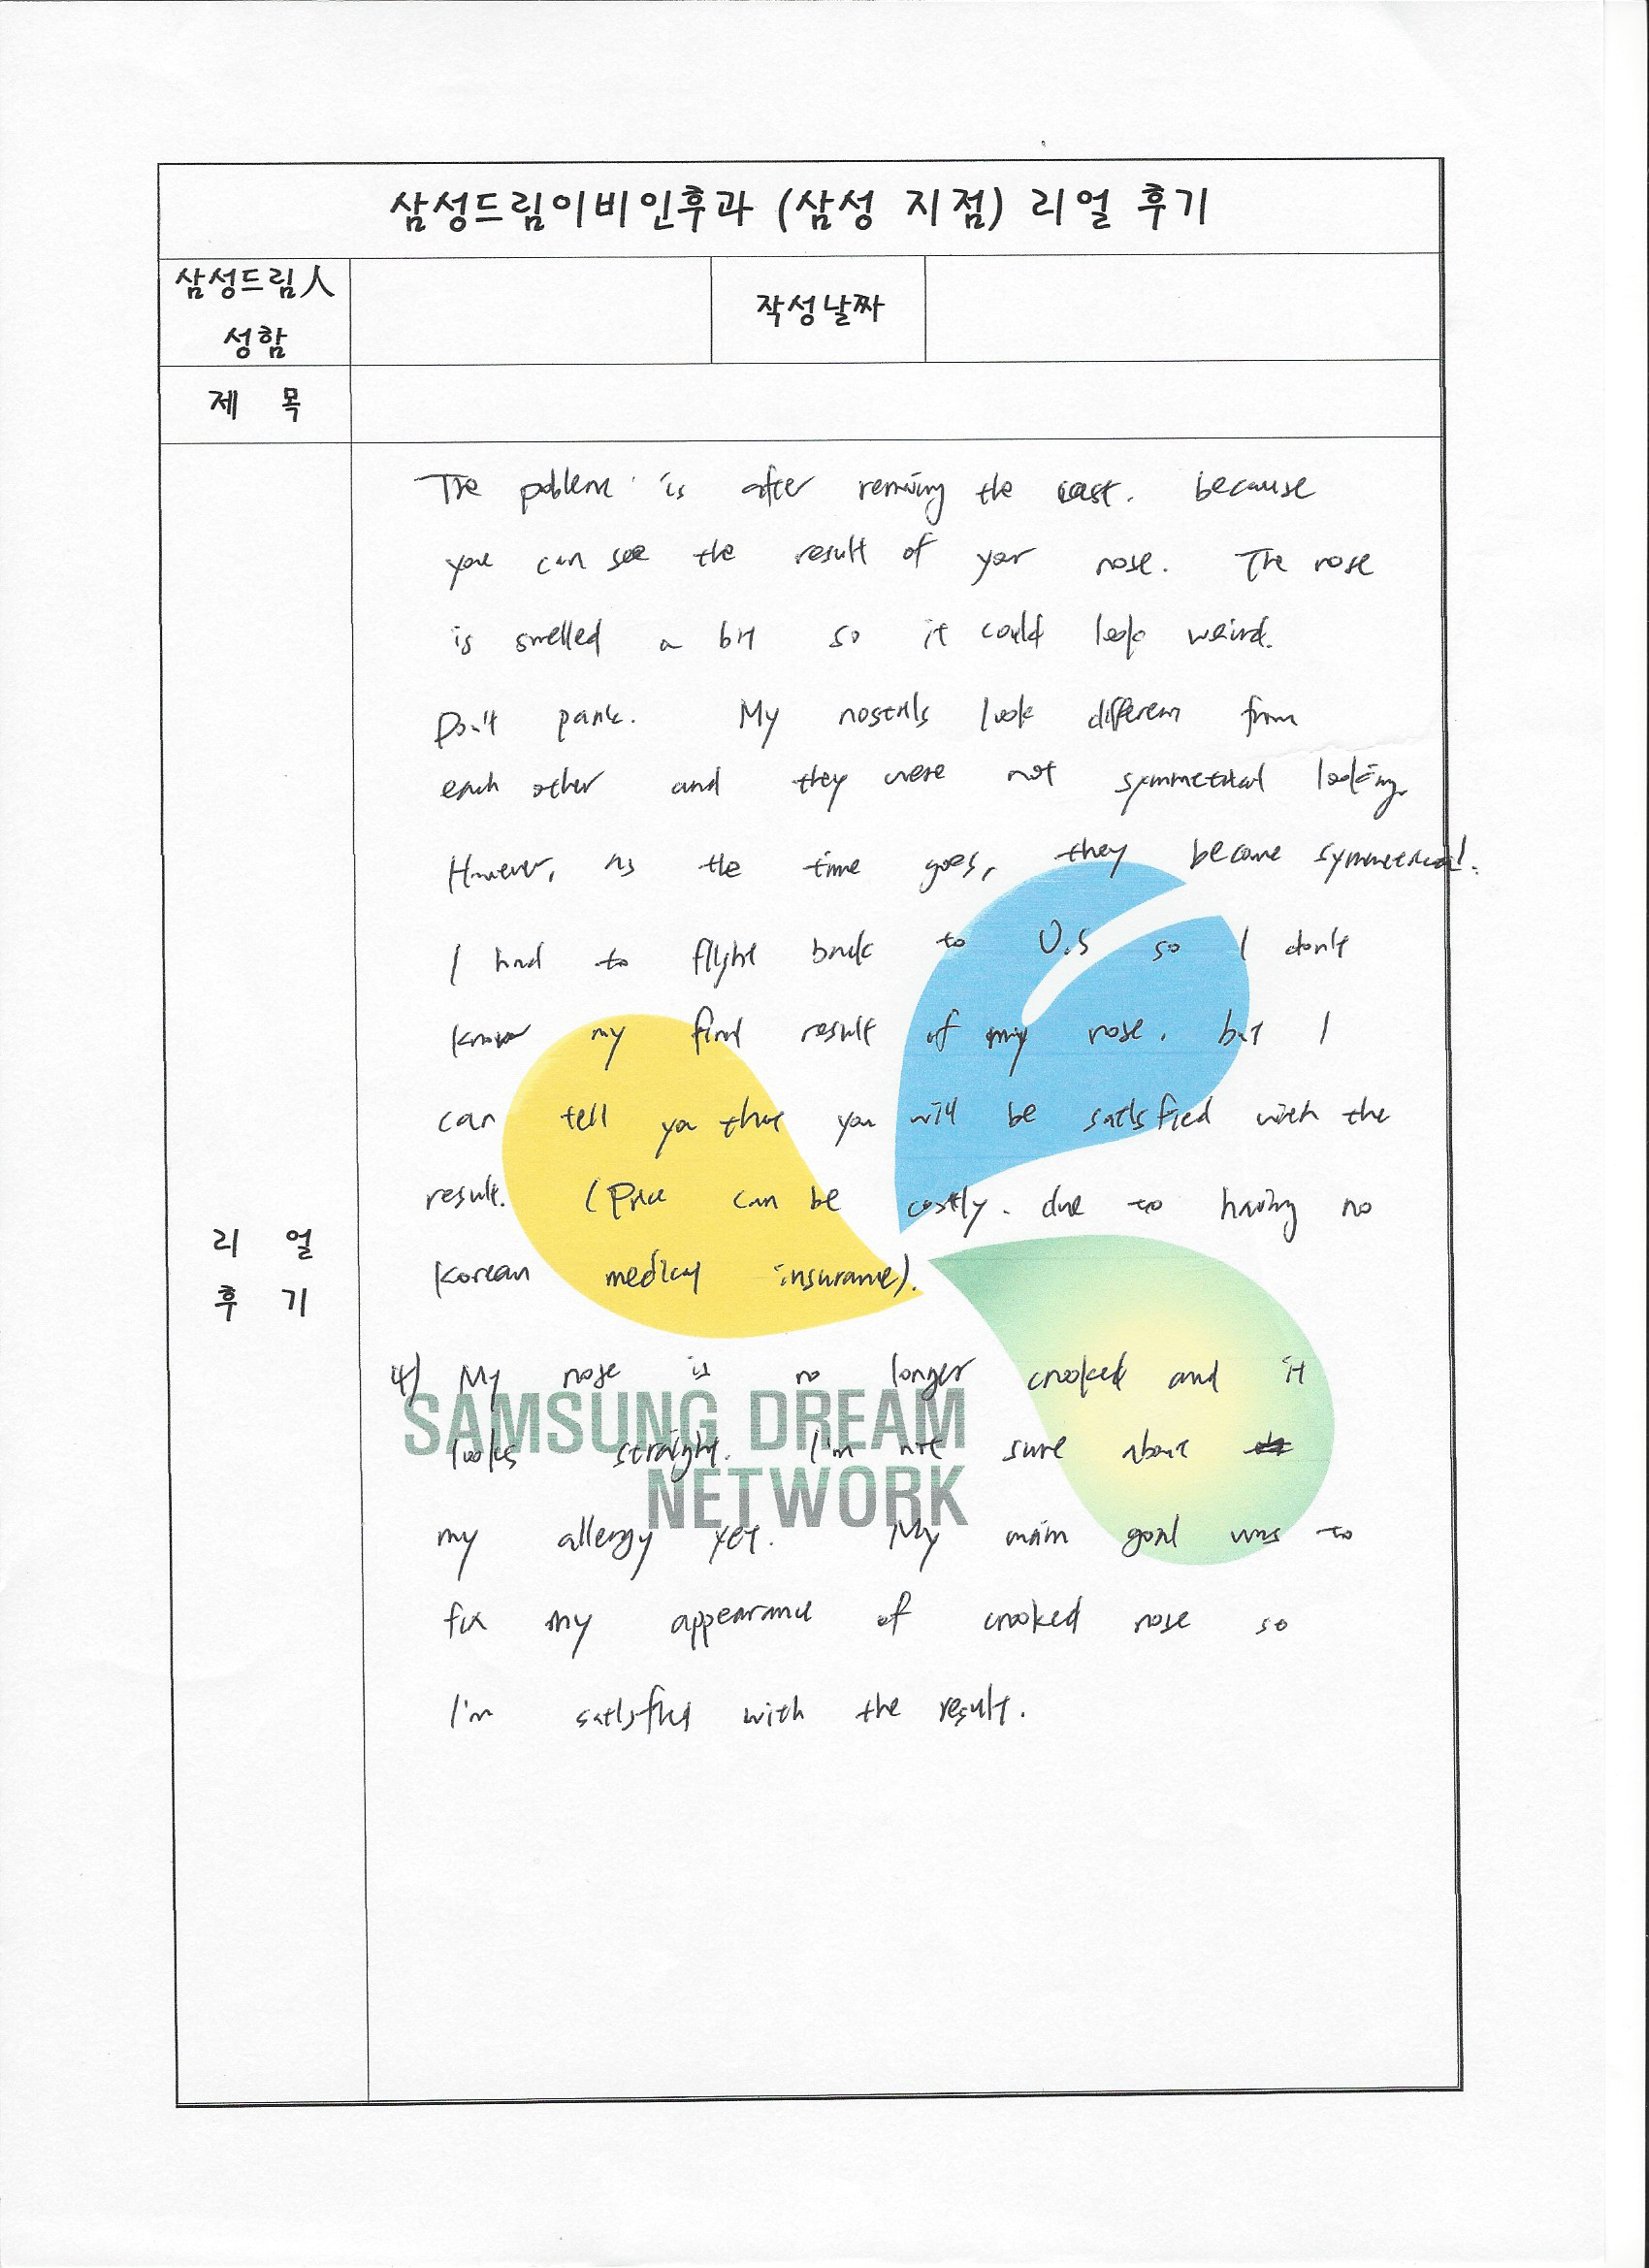 삼성드림이비인후과 (삼성 지점) 리얼 후기
삼성드림人
성함
작성날짜
제 목
The poblem is after removing the cast. because
you can see the result of your nose. The nose
is swelled a bit so it could look weird.
Don't panic. My nostrils look different from
each other and they were not symmetrical looking.
However, as the time goes, they became symmetrical.
I had to flight back to U.S so I don't
know my final result of my nose. but I
can tell you that you will be satisfied with the
result. (Price can be costly. due to having no
korean medical insurance).
리 얼
후 기
4) My nose is no longer crooked and it
looks straight. I'm not sure about
my allergy yet. My main goal was to
fix my appearance of crooked nose so
I'm satisfied with the result.
SAMSUNG DREAM
NETWORK